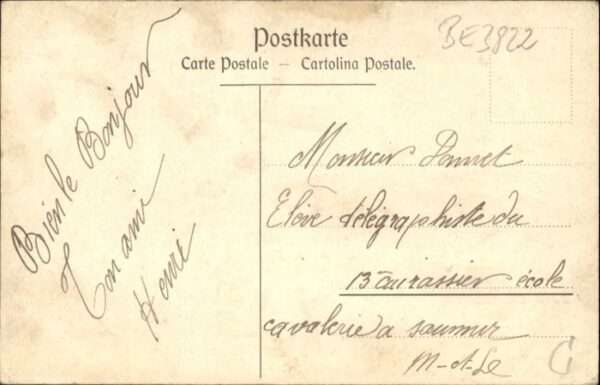 Postkarte
Carte Postale — Cartolina Postale.
BE3822
Bien le Bonjour
Ton ami
Henri
Monsieur
Elève télégraphiste du
13e cuirassier école
cavalerie a saumur
M-et-Le
C